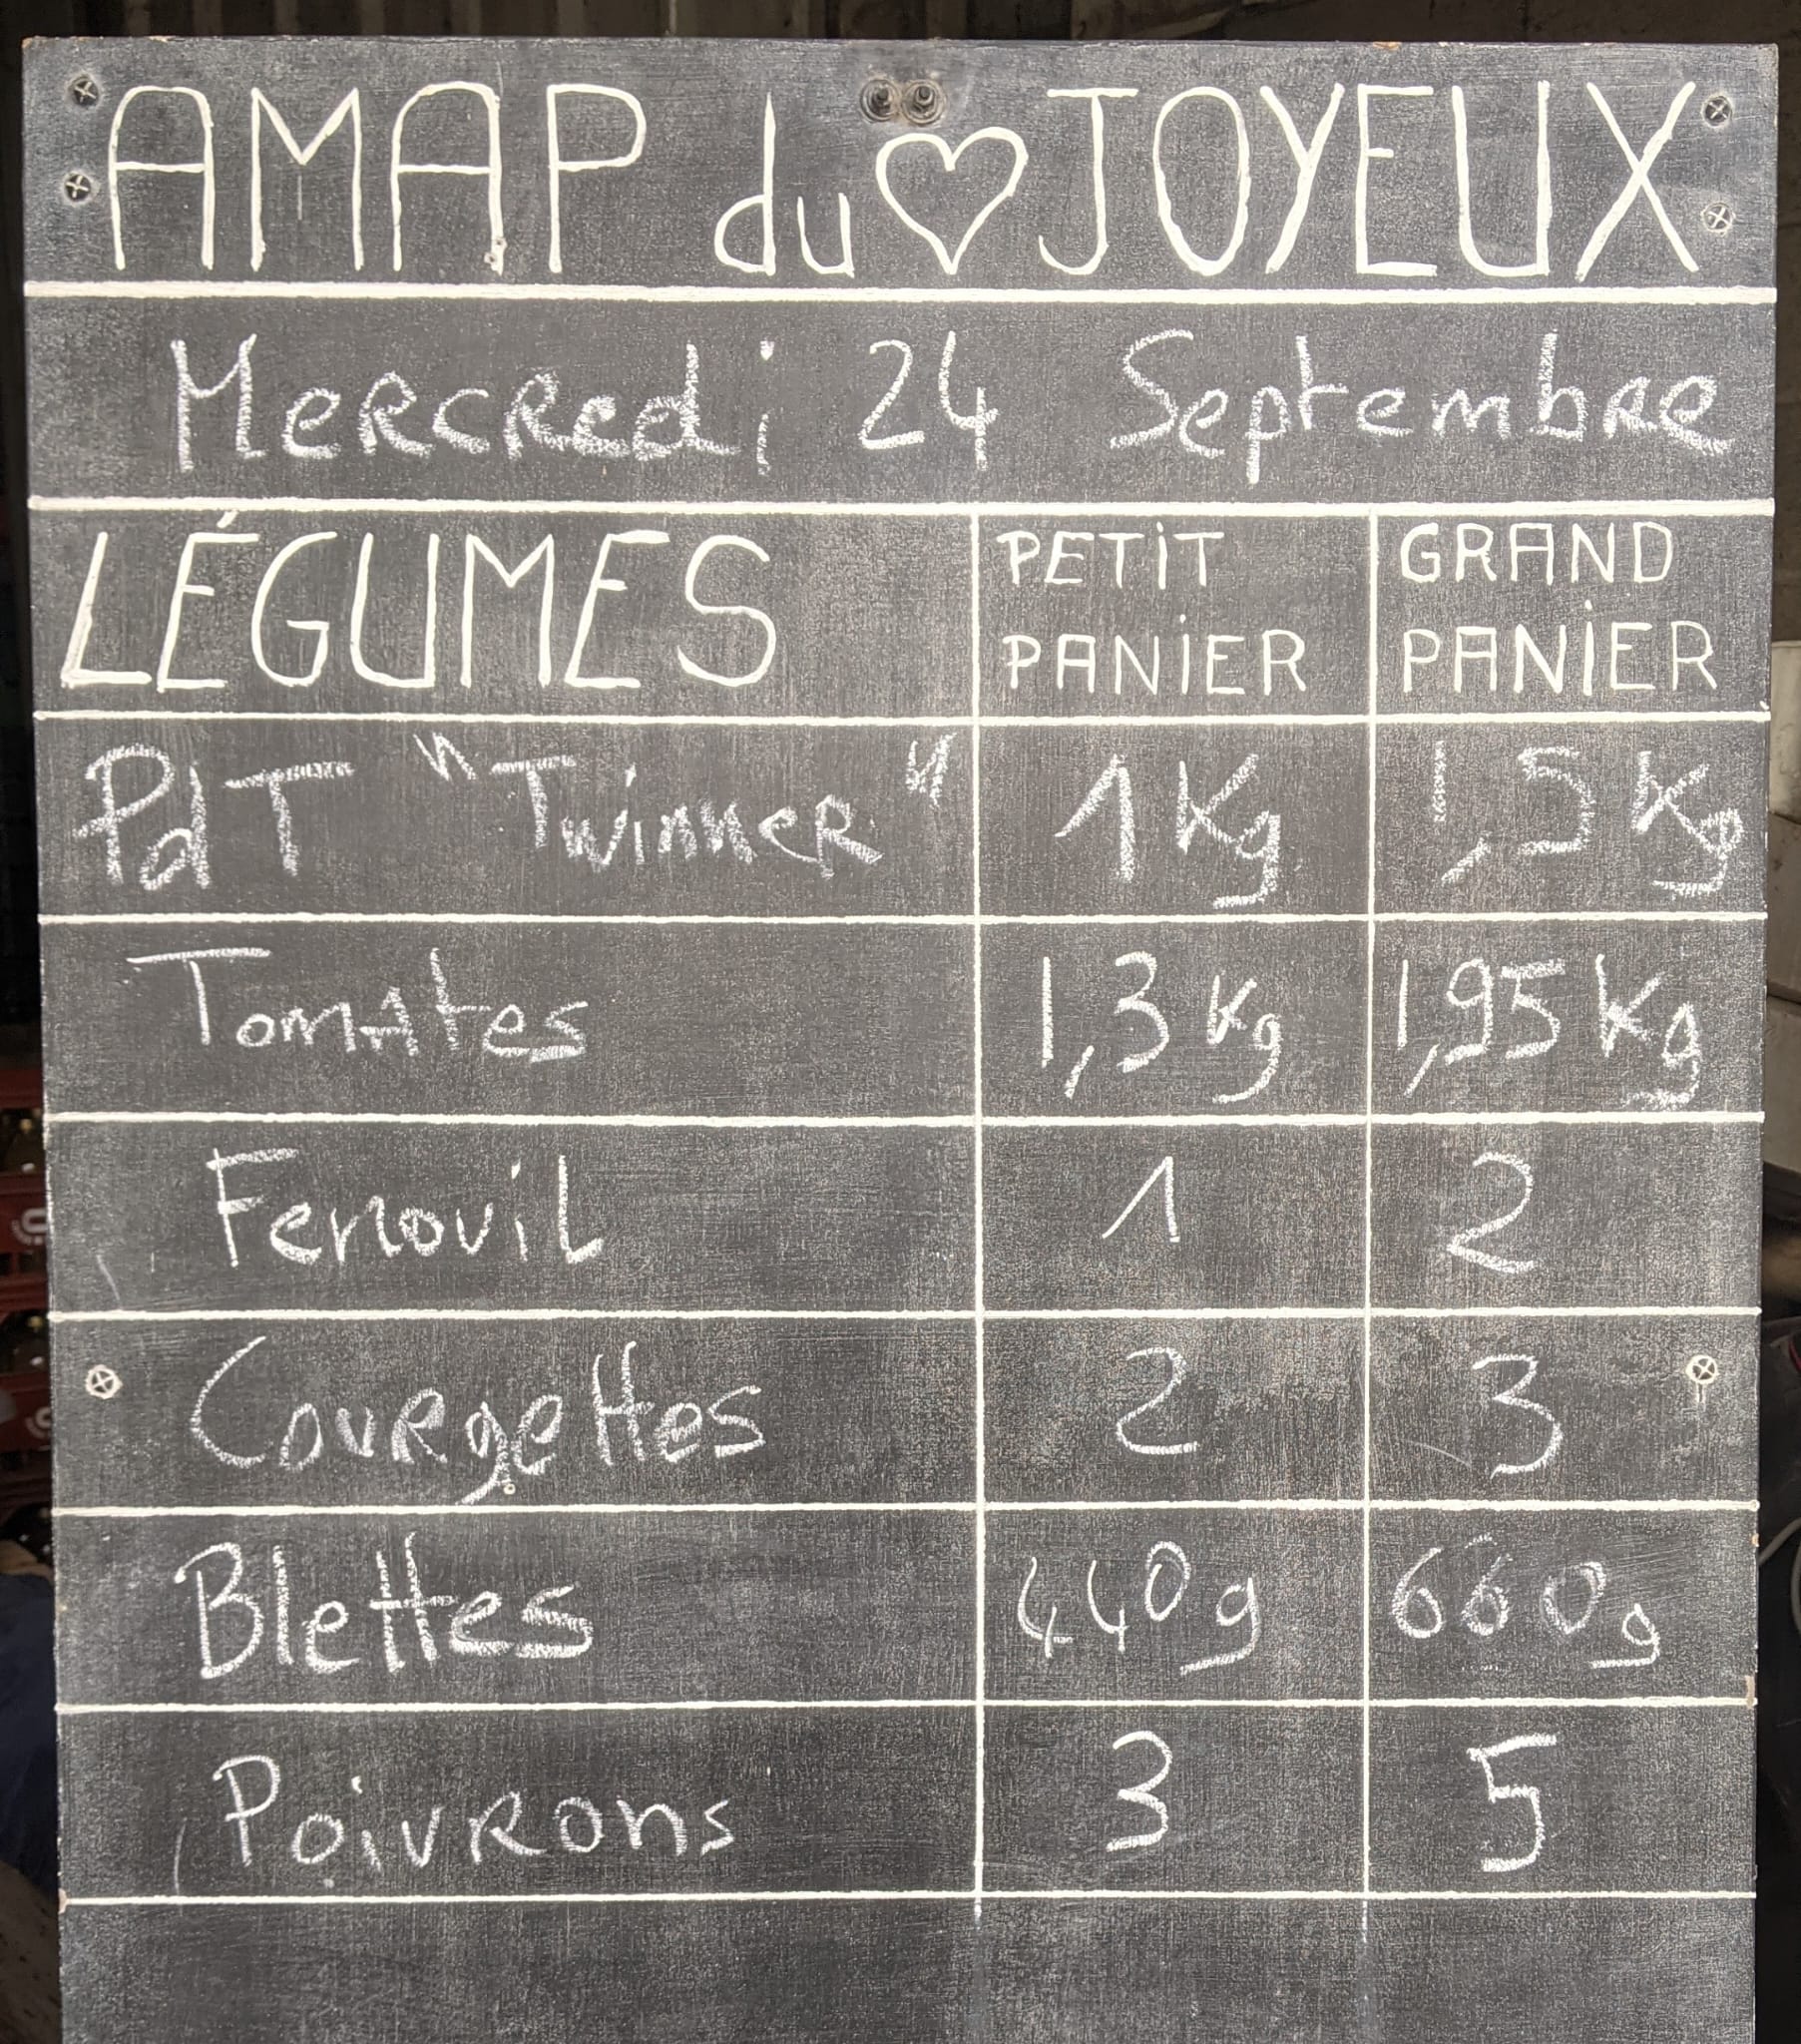 AMAP du ♡ JOYEUX
Mercredi 24 Septembre
LÉGUMES PETIT PANIER GRAND PANIER
PdT "Twinner" 1 Kg 1,5 Kg
Tomates 1,3 Kg 1,95 Kg
Fenouil 1 2
Courgettes 2 3
Blettes 440g 660g
Poivrons 3 5